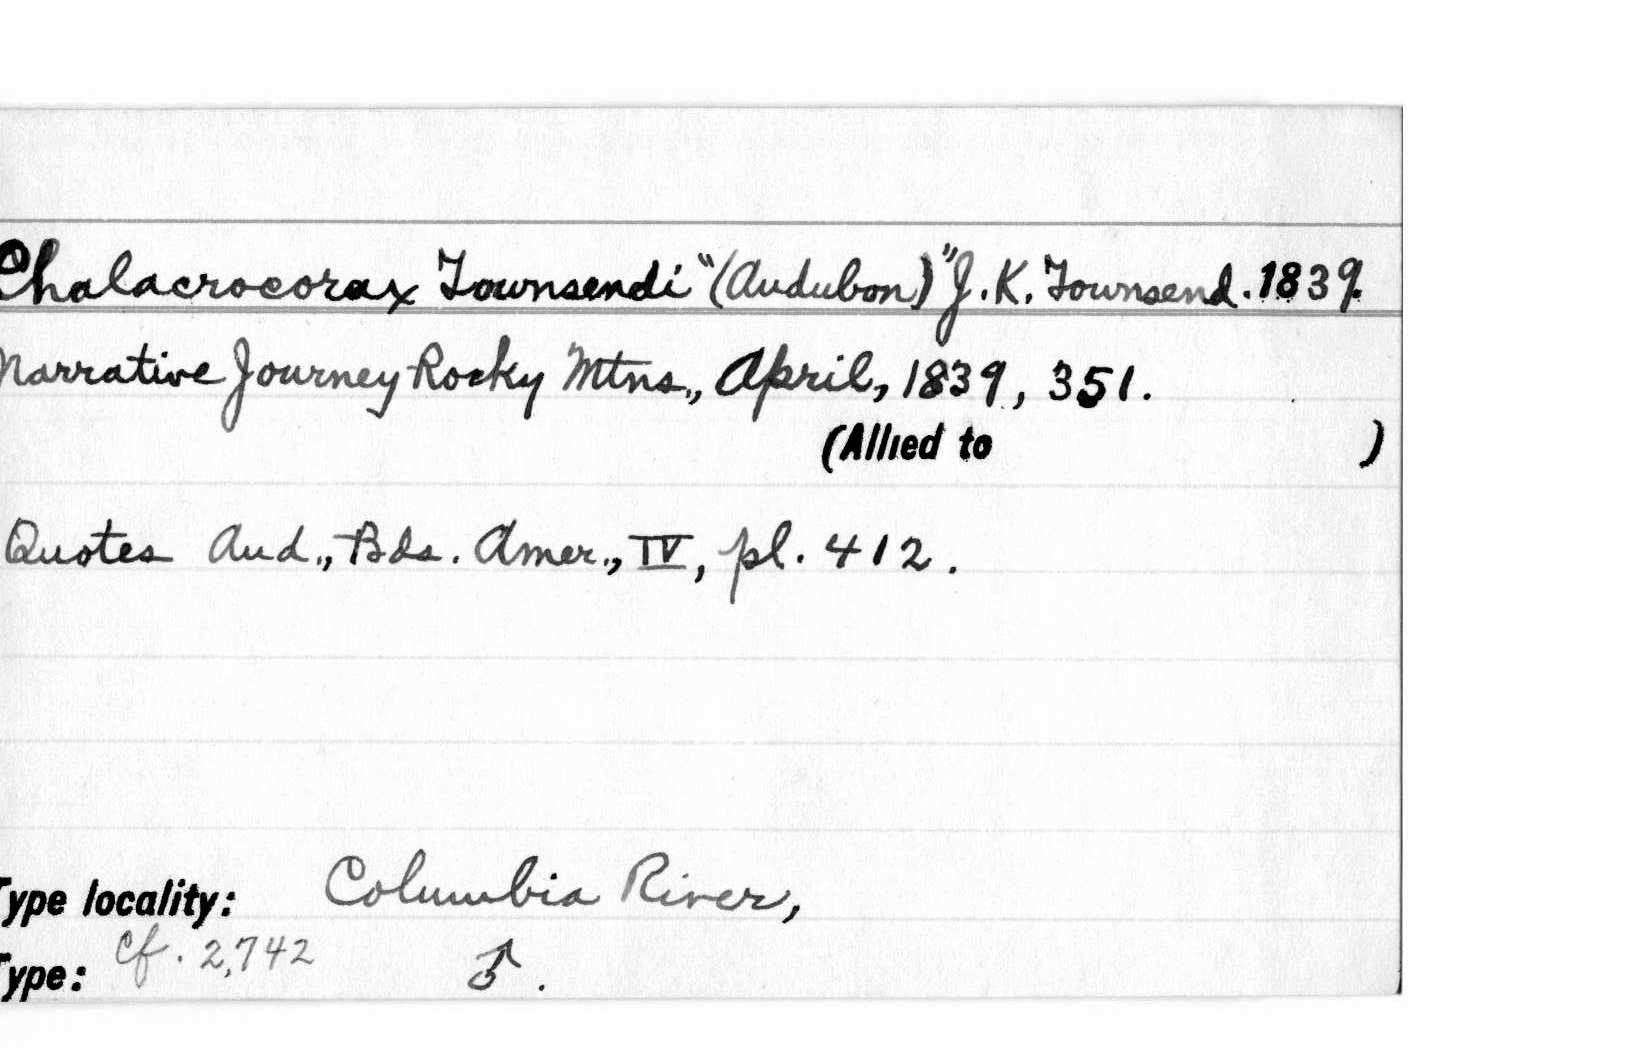 Phalacrocorax Townsendi "(Audubon)" J. K. Townsend. 1839.
Narrative Journey Rocky Mtns., April, 1839, 351.
(Allied to )
Quotes Aud., Bds. Amer., IV, pl. 412.
Type locality: Columbia River,
Type: cf. 2,742 ♂.